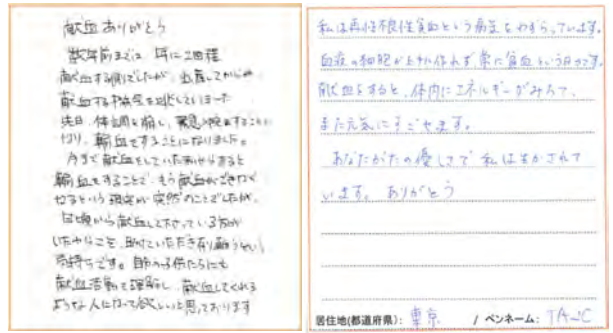 献血ありがとう
数年前までは、年に2回程
献血する側でしたが、出産してからは
献血する機会を逃していました
先日、体調を崩し、緊急
輸血をすることになりました。
今まで献血をしていた
輸血をすることで、もう献血ができなく
なるという現実が突然のことでしたが、
日頃から献血して下さっている方が
いたからこそ、助けていただき有り難うという
気持ちです。自分の子供たちにも
献血活動を理解し、献血してくれる
ような人になって欲しいと思っております
私は再生不良性貧血という病気をわずらっています。
血液の細胞が上手に作れず常に貧血という
献血をすると、体内にエネルギーがみちて、
また元気にすごせます。
あなたがたの優しさで私は生かされて
います。ありがとう
居住地(都道府県): 東京 / ペンネーム: